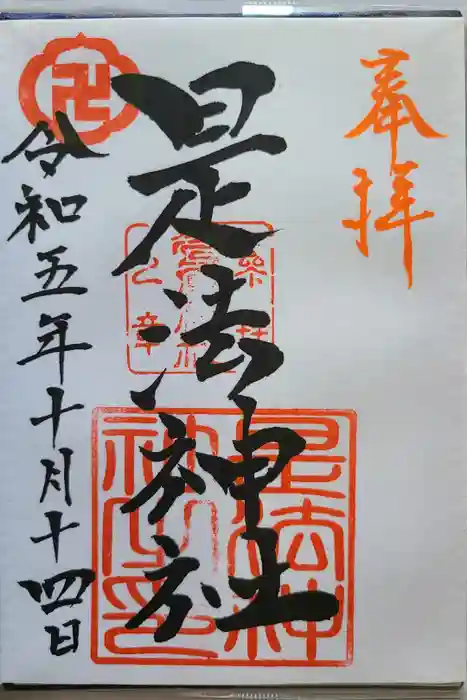 奉拝
是法神社
是法神社之印
令和五年十月十四日